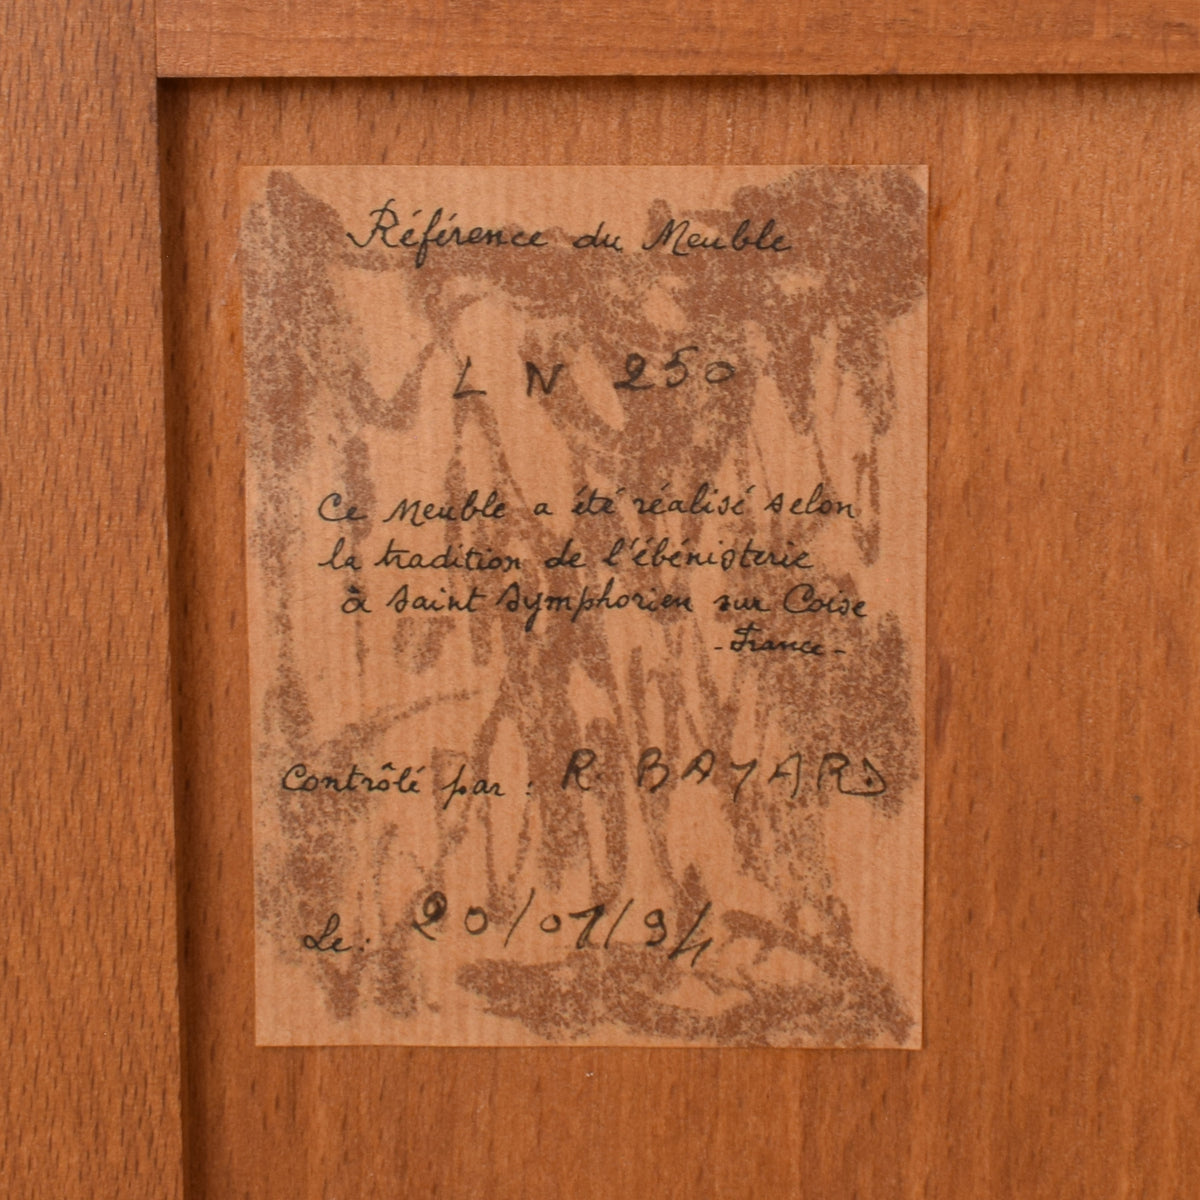 Référence du Meuble
L N 250
Ce Meuble a été réalisé selon
la tradition de l'ébénisterie
à Saint Symphorien sur Coise
- France -
Contrôlé par : R BAYARD
Le : 20/07/94